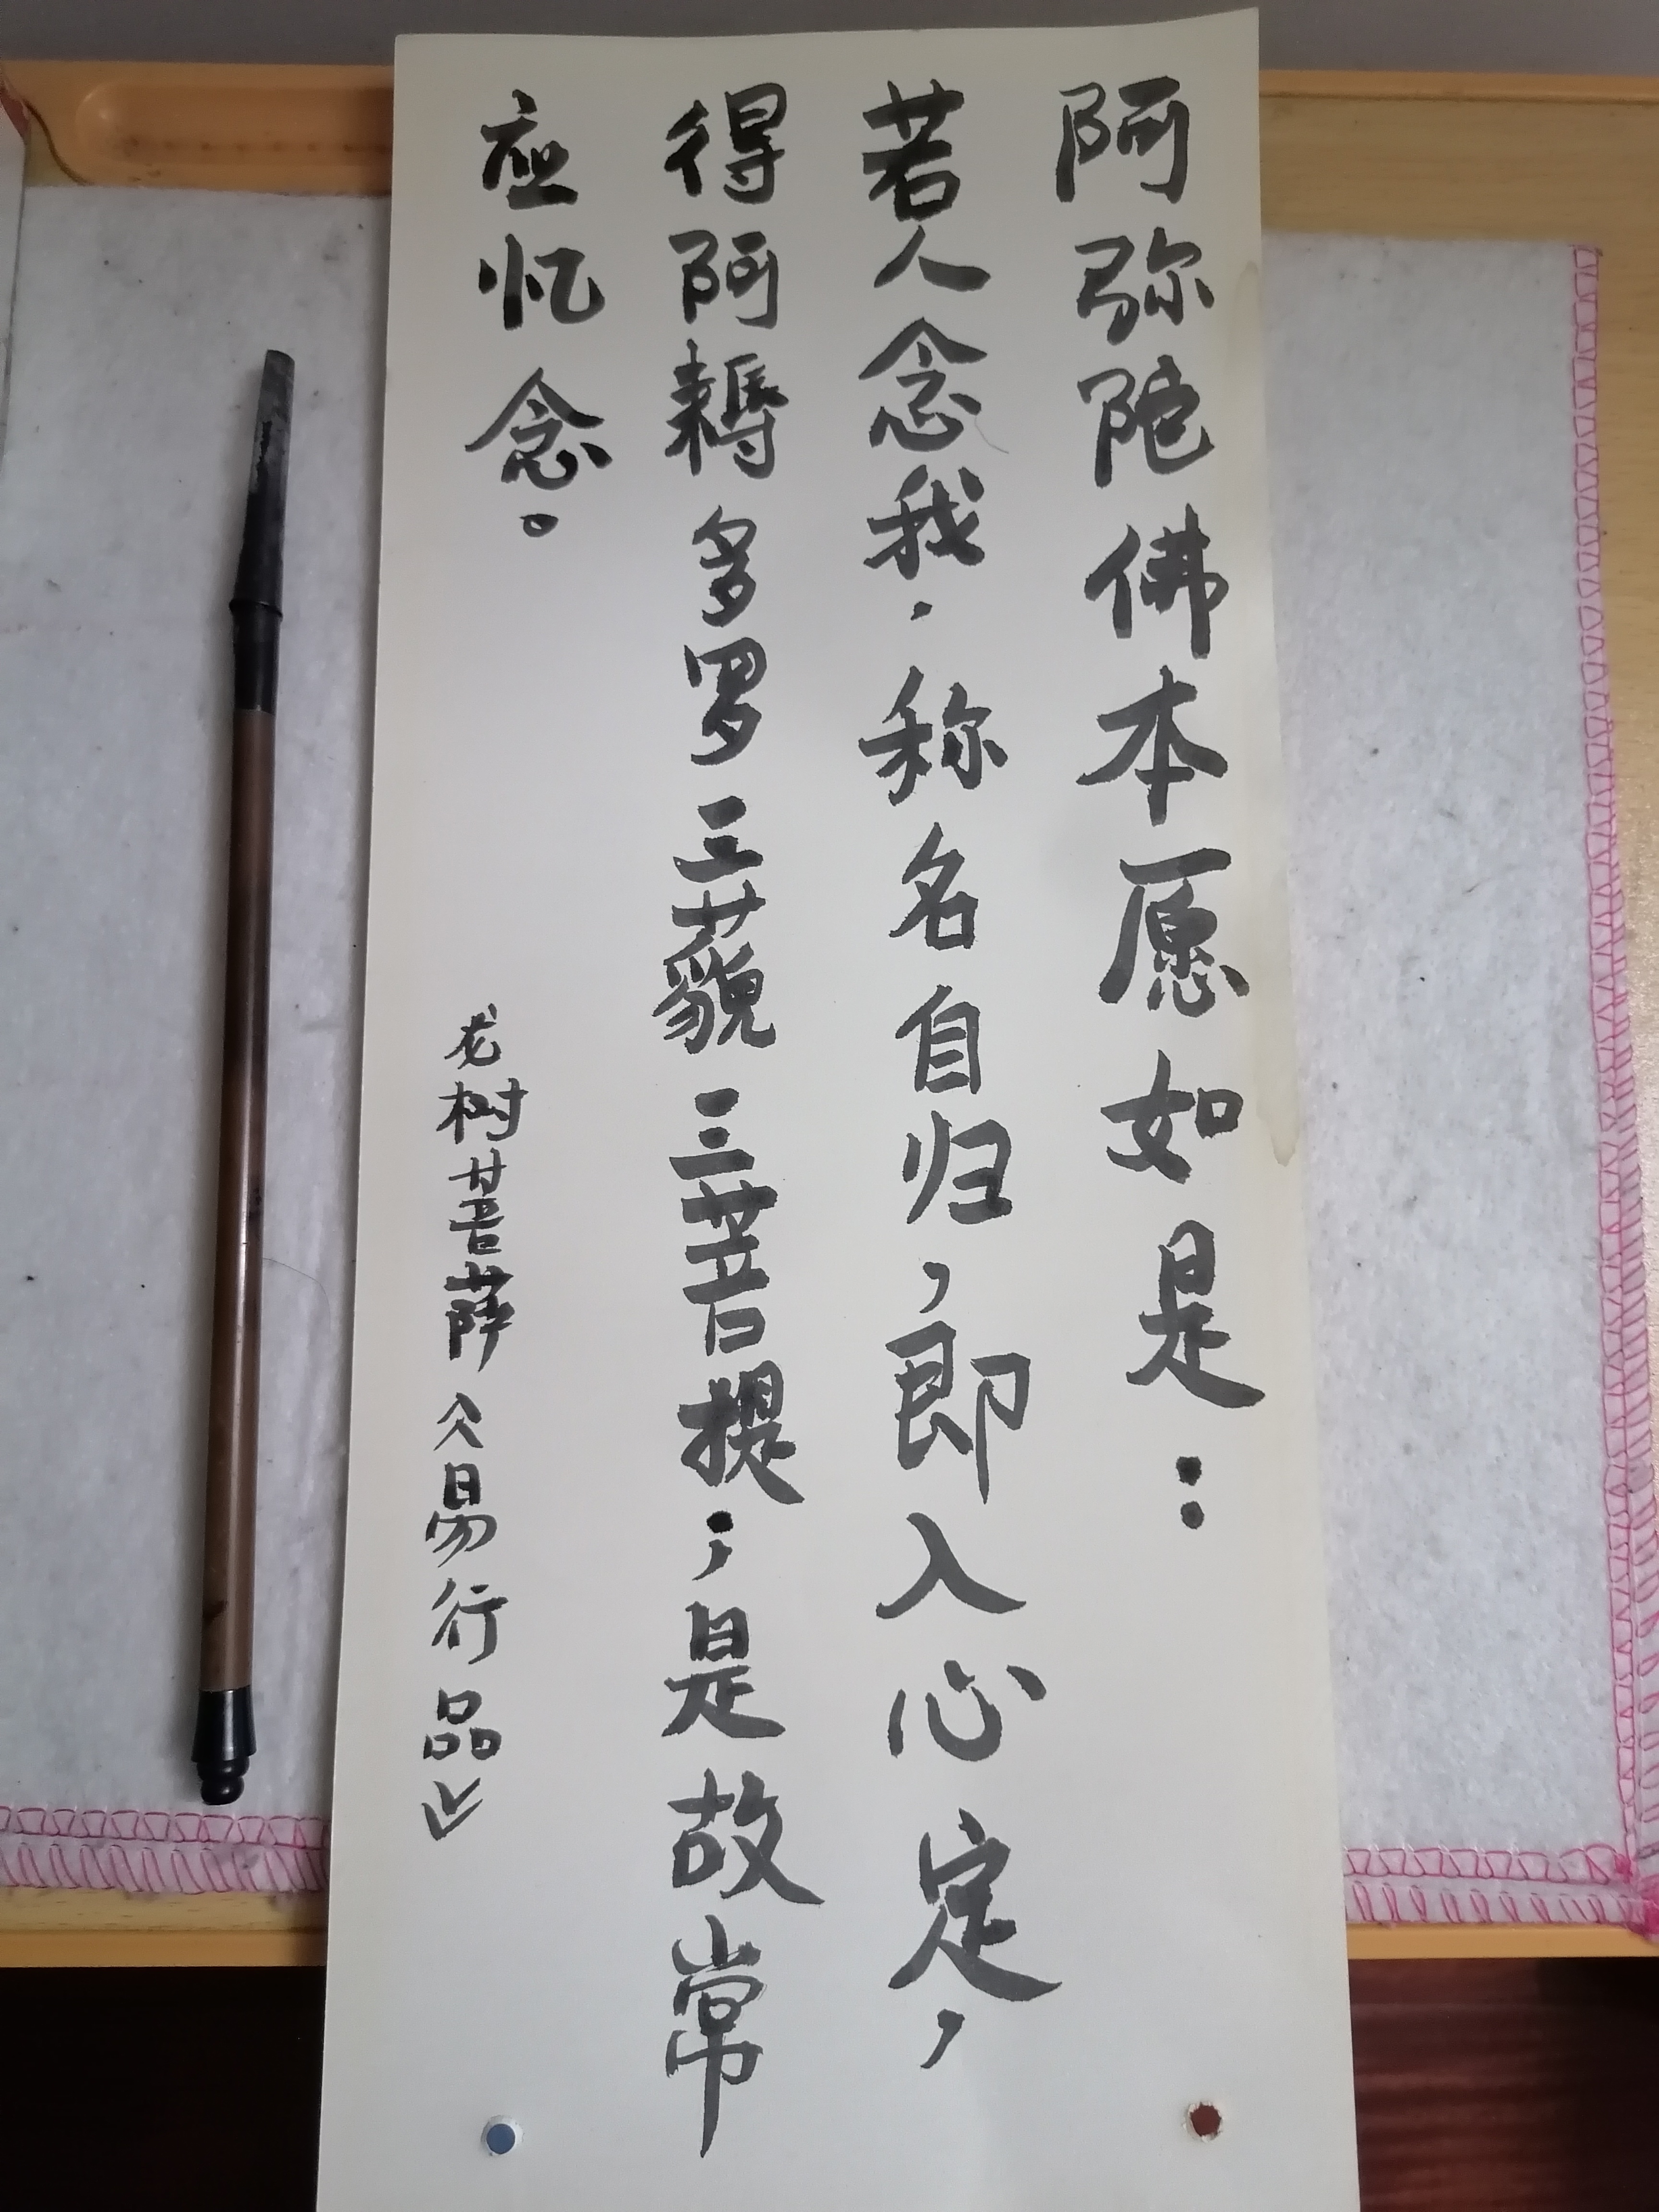 阿弥陀佛本愿如是：
若人念我．称名自归，即入心定，
得阿耨多罗三藐三菩提；是故常
应忆念。
龙树菩萨《易行品》